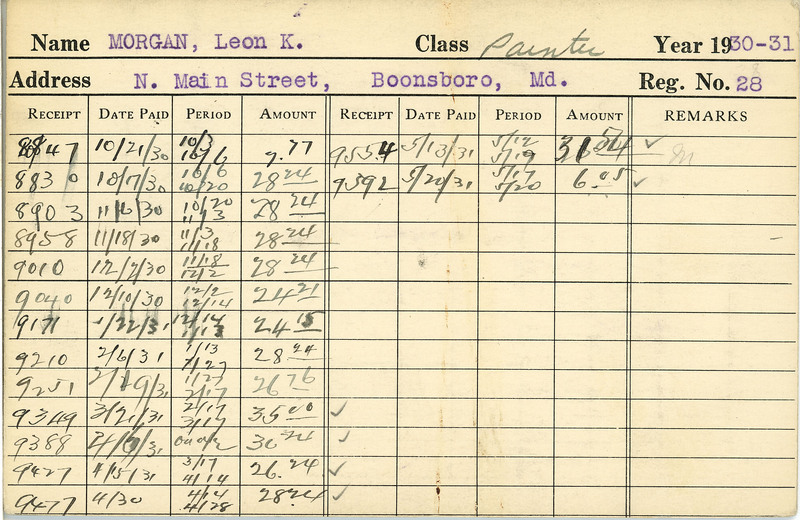 Name MORGAN, Leon K. Class Painter Year 1930-31
Address N. Main Street, Boonsboro, Md. Reg. No. 28
RECEIPT DATE PAID PERIOD AMOUNT RECEIPT DATE PAID PERIOD AMOUNT REMARKS
8847 10/21/30 10/3 10/6 7.77 9554 5/13/31 5/12 5/19 ✓
8830 10/7/30 10/6 10/20 28 24 9592 5/20/31 5/17 5/20 6.05 ✓
8903 11/6/30 10/20 11/3 28 24
8958 11/18/30 11/3 11/18 28 24
9010 12/2/30 11/18 12/2 28 24
9040 12/10/30 12/2 12/14 24 21
9171 1/22/31 12/14 1/13 24 15
9210 2/6/31 1/13 1/27 28 24
9251 2/19/31 1/27 2/17 26 76
9349 3/21/31 2/17 3/17 35 00 ✓
9388 4/ /31 30 24 ✓
9427 4/15/31 3/17 4/14 26.24 ✓
9477 4/30 4/14 4/28 28 24 ✓